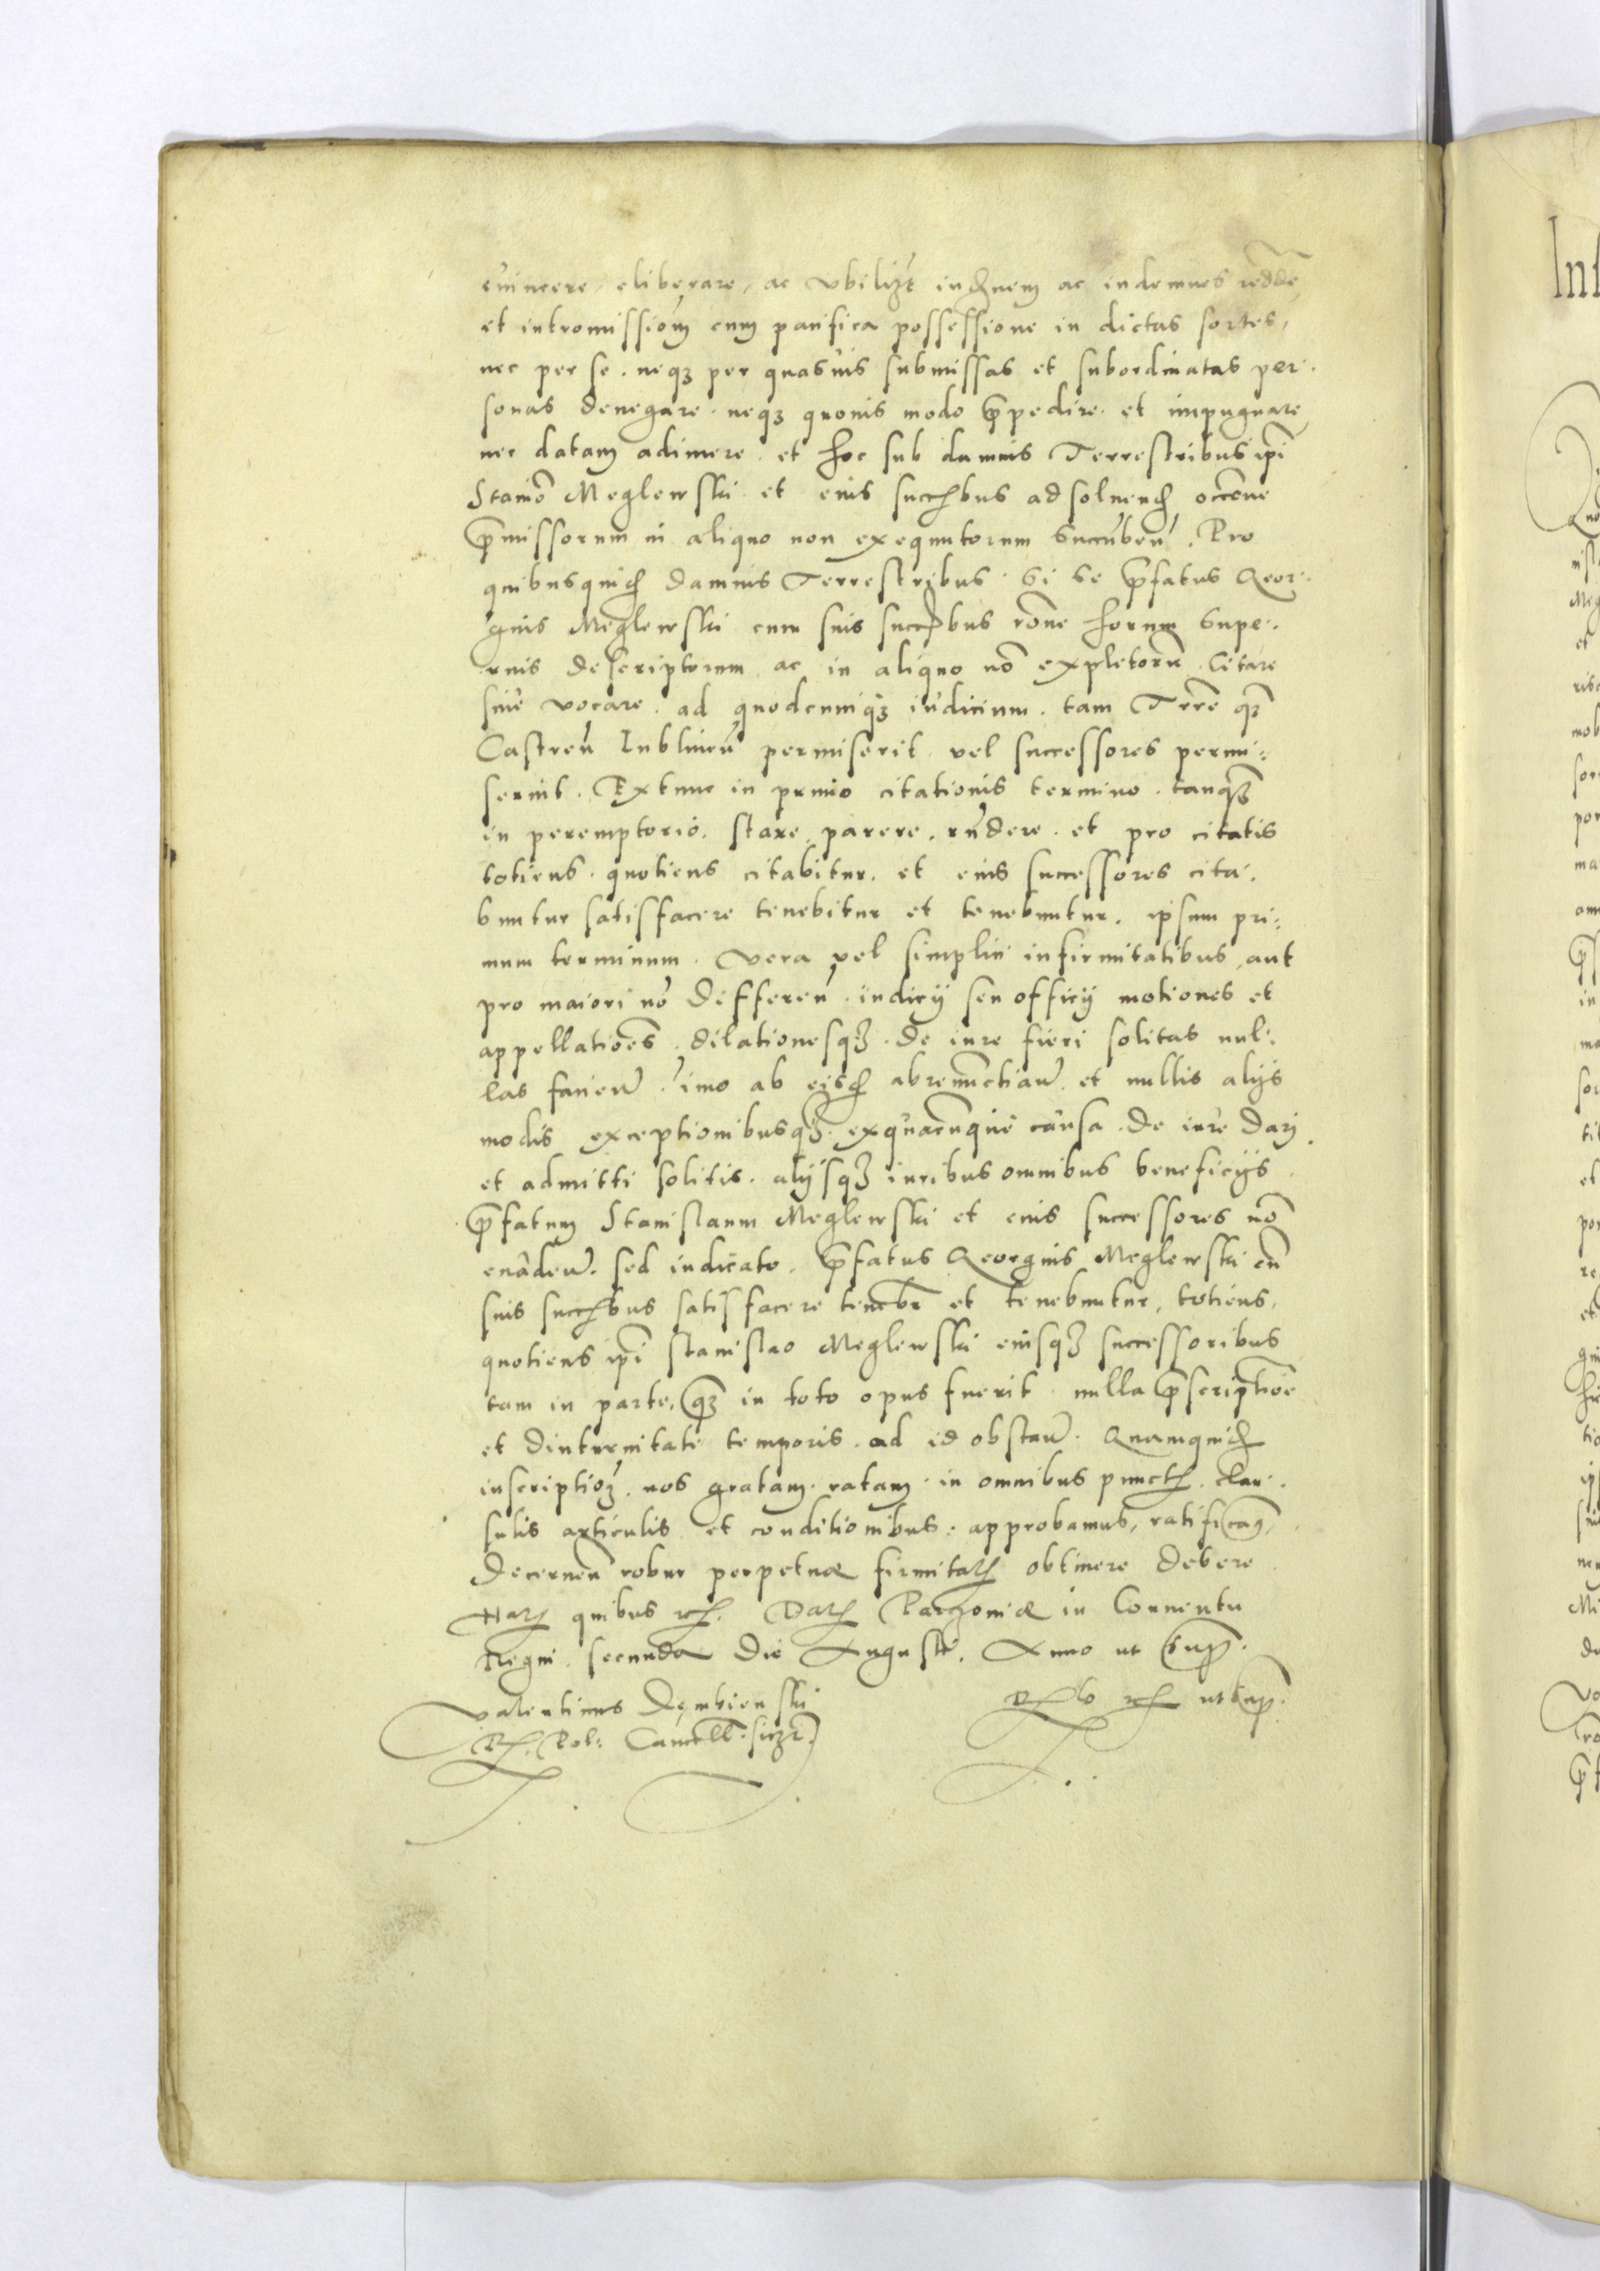 euincere, eliberare, ac vbilizt indemnem ac indemnes redde
et intromissiom cum pacifica possessione in dictas sortes,
nec per se. neqz per quasuis submissas et subordinatas per.
sonas denegare. neqz quouis modo p̄pedire. et impugnare,
nec datam adimere. et hoc sub damnis Terrestribus ip̄i
Stanio Meglewski et eius succbus ad soluend, occōne
p̄missorum in aliquo non exequutorum succubeñ. Pro
quibusquid damnis Terrestribus. Si se p̄fatus Geor.
gius Meglewski cum suis succbus rōne horum supe.
rius descriptorum ac in aliquo nō expletorū. Citare
siue vocare. ad quodcunqz iudicium. tam Terrē qz
Castreñ Lublineñ permiserit vel successores permi:
serint. Extunc in primo citationis termino. tanqz
in peremptorio. stare, parere, rñdere. et pro citatis
totiens. quotiens citabitur. et eius successores cita.
buntur satisfacere tenebitur et tenebuntur. ipsum pri:
mum terminum. vera vel simplici infirmitatibus, aut
pro maiori nō differeñ. iudicij seu officij motiones et
appellatiōes. dilationesqz. de iure fieri solitas nul.
las facieñ. imo ab eisd abrenuncciañ. et nullis alijs
modis exceptionibusqz. exquacunque causa. de iure dari
et admitti solitis. alijsqz iuribus omnibus beneficijs
p̄fatum Stanislaum Meglewski et eius successores nō
euadeñ. sed iudicato. p̄fatus Georgius Meglewski cū
suis succbus satisfacere tenebr et tenebuntur, totiens,
quotiens ip̄i Stanislao Meglewski eiusqz successoribus
tam in parte, qz in toto opus fuerit. nulla p̄scriptiōe
et diuturnitate temporis. ad id obstañ. Quamquid
inscriptioz. nos gratam. ratam. in omnibus punct. clau.
sulis articulis et conditionibus. approbamus, ratificam,
Decerneñ robur perpetuæ firmitat obtinere debere
Har quibus rc. Dat Parzoviæ in Conuentu
Regni. secunda Die Augusti. Anno ut sup.
Valentinus Dembienski
R. Pol: Cancell. sszt
Rlo rc ut sup.